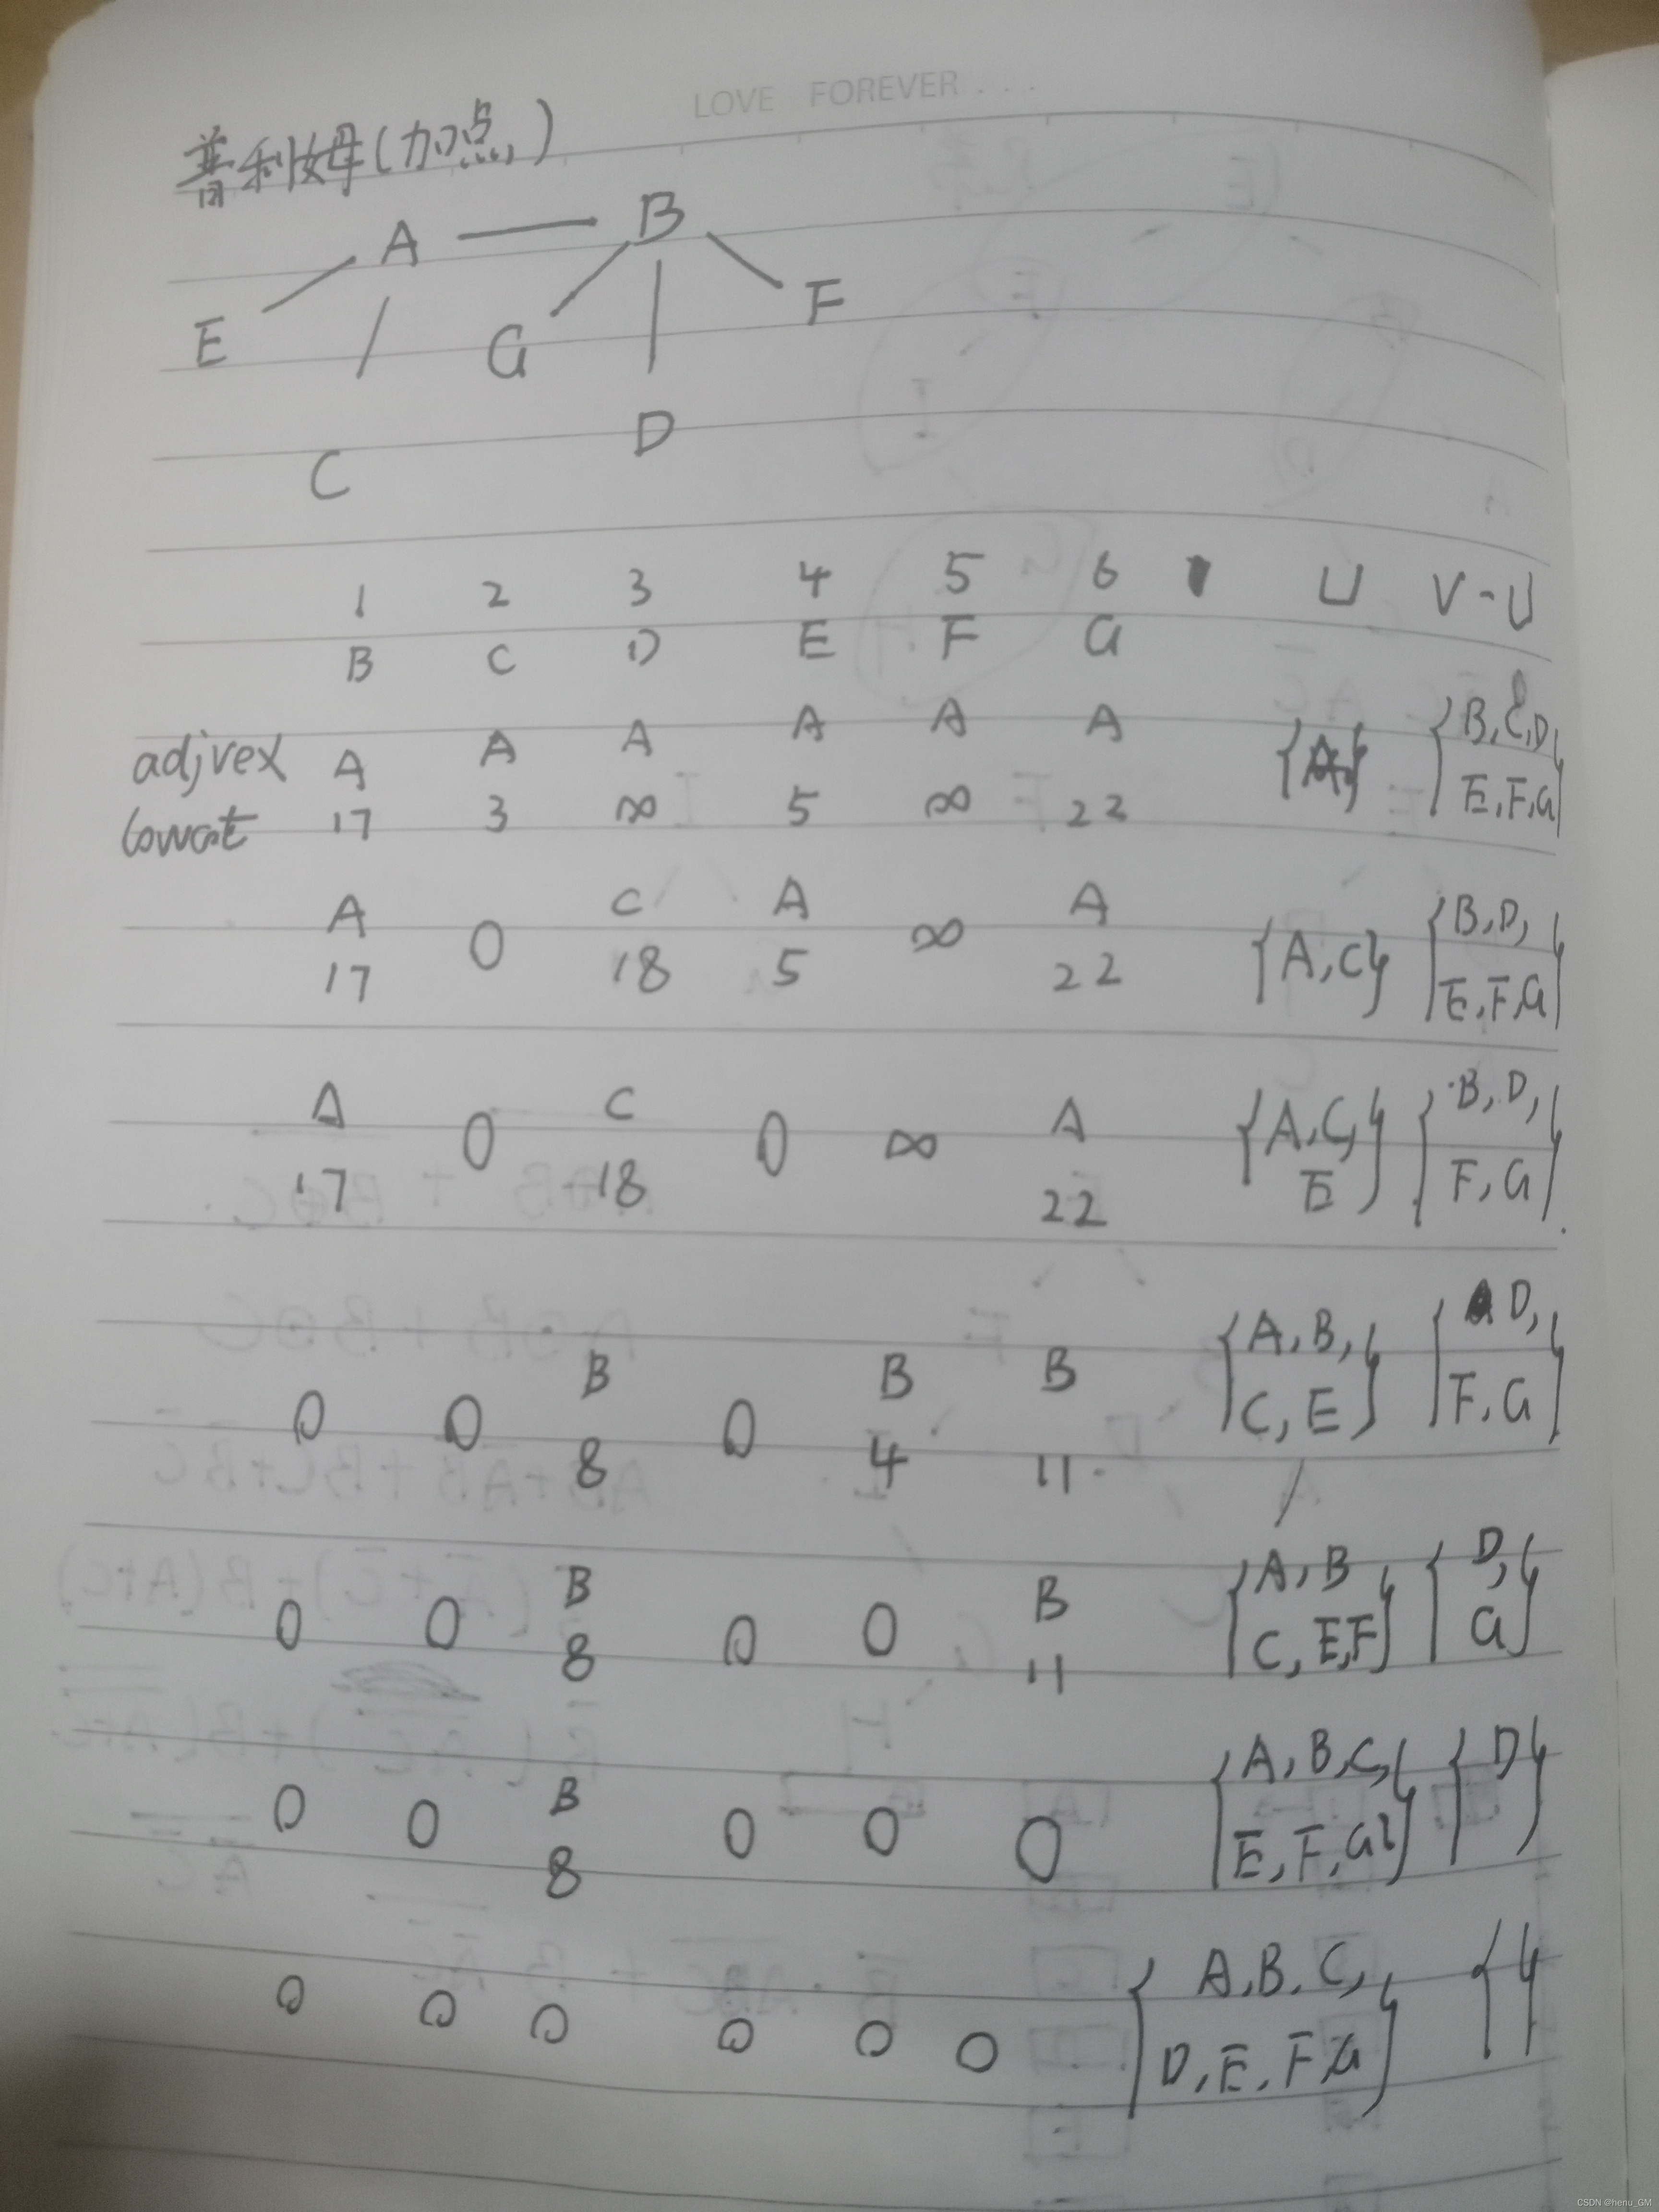 LOVE FOREVER . . .
普利姆(加点)
A B
E G F
C D
1 2 3 4 5 6 U V-U
B C D E F G
adjvex A A A A A A {A} {B,C,D,
lowcost 17 3 ∞ 5 ∞ 22 E,F,G}
A 0 C A ∞ A {A,C} {B,D,
17 18 5 22 E,F,G}
A 0 C 0 ∞ A {A,C, {B,D,
17 18 22 E} F,G}
0 0 B 0 B B {A,B, {D,
8 4 11 C,E} F,G}
0 0 B 0 0 B {A,B {D,
8 11 C,E,F} G}
0 0 B 0 0 0 {A,B,C, {D}
8 E,F,G}
0 0 0 0 0 0 {A,B,C, {}
D,E,F,G}
CSDN @henu_GM